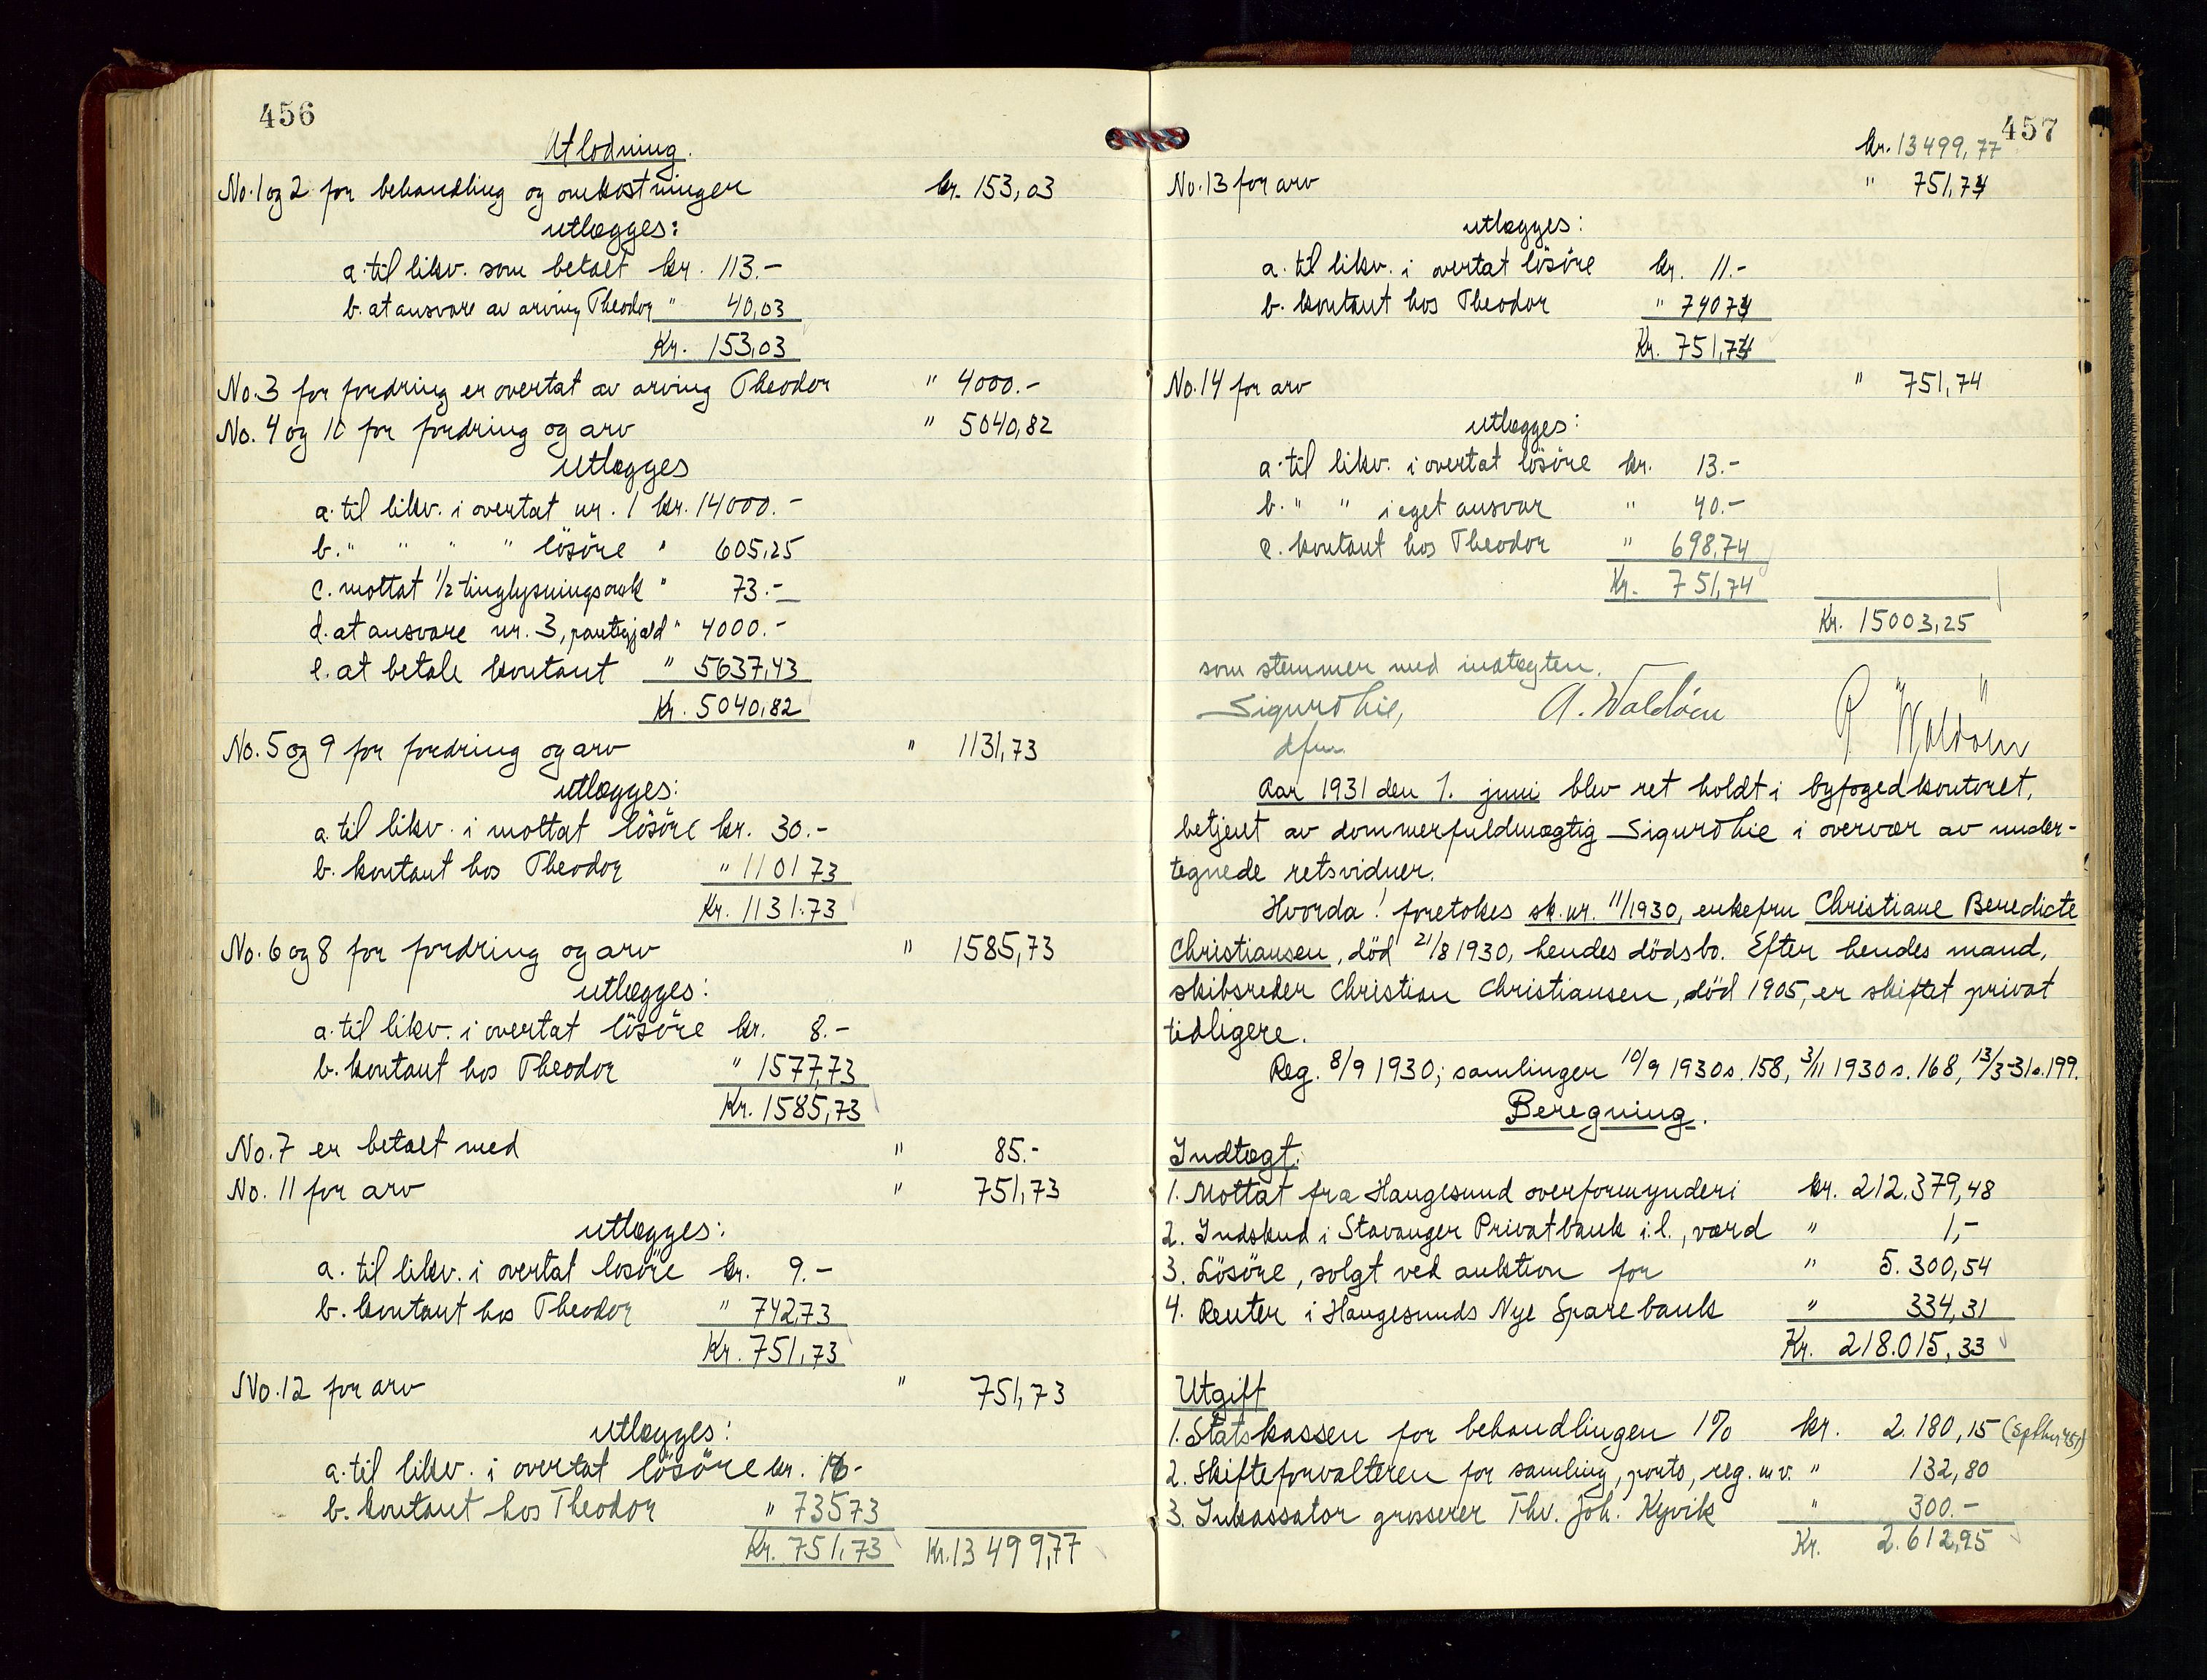 456
Utlodning.
No. 1 og 2 for behandling og omkostninger kr. 153,03
utlægges:
a. til likv. som betalt kr. 113.-
b. at ansvare av arving Theodor " 40,03
Kr. 153,03
No. 3 for fordring er overtat av arving Theodor " 4000.-
No. 4 og 10 for fordring og arv " 5040,82
utlægges
a. til likv. i overtat nr. 1 kr. 14000.-
b. " " " " lösöre " 605,25
c. mottat 1/2 tinglysningsomk " 73.-
d. at ansvare nr. 3, pantegjæld " 4000.-
e. at betale kontant " 5637,43
Kr. 5040,82
No. 5 og 9 for fordring og arv " 1131,73
utlægges:
a. til likv. i mottat lösöre kr. 30.-
b. kontant hos Theodor " 1101 73
Kr. 1131.73
No. 6 og 8 for fordring og arv " 1585,73
utlægges:
a. til likv. i overtat lösöre kr. 8.-
b. kontant hos Theodor " 1577,73
Kr. 1585,73
No. 7 er betalt med " 85.-
No. 11 for arv " 751,73
utlægges:
a. til likv. i overtat losöre kr. 9.-
b. kontant hos Theodor " 742,73
Kr. 751,73
No. 12 for arv " 751,73
utlægges:
a. til likv. i overtat lösöre kr. 16-
b. kontant hos Theodor " 735 73
Kr. 751,73 Kr. 13499,77
457
kr. 13499,77
No. 13 for arv " 751,74
utlægges:
a. til likv. i overtat lösöre kr. 11.-
b. kontant hos Theodor " 740 74
Kr. 751,74
No. 14 for arv " 751,74
utlægges:
a. til likv. i overtat lösöre kr. 13.-
b. " " i eget ansvar " 40.-
c. kontant hos Theodor " 698,74
Kr. 751,74
Kr. 15003,25
som stemmer med indtægten.
Sigurd Lie, A. Waldöen R Waldöen
dfm.
Aar 1931 den 1. juni blev ret holdt i byfogedkontoret,
betjent av dommerfuldmægtig Sigurd Lie i overvær av under-
tegnede retsvidner.
Hvorda! foretokes sk. nr. 11/1930, enkefru Christiane Benedicte
Christiansen, död 21/8 1930, hendes dödsbo. Efter hendes mand,
skibsreder Christian Christiansen, död 1905, er skiftet privat
tidligere.
Reg. 8/9 1930; samlinger 10/9 1930 s. 158, 3/11 1930 s. 168, 13/3-31 s. 199.
Beregning.
Indtægt.
1. Mottat fra Haugesund overformynderi kr. 212.379,48
2. Indskud i Stavanger Privatbank i.l., værd " 1,-
3. Lösöre, solgt ved auktion for " 5.300,54
4. Renter i Haugesunds Nye Sparebank " 334,31
Kr. 218.015,33
Utgift
1. Statskassen for behandlingen 1% kr. 2.180,15
2. Skifteforvalteren for samling, porto, reg. m.v. " 132,80
3. Inkassator grosserer Thv. Joh. Kyvik " 300.-
Kr. 2.612,95